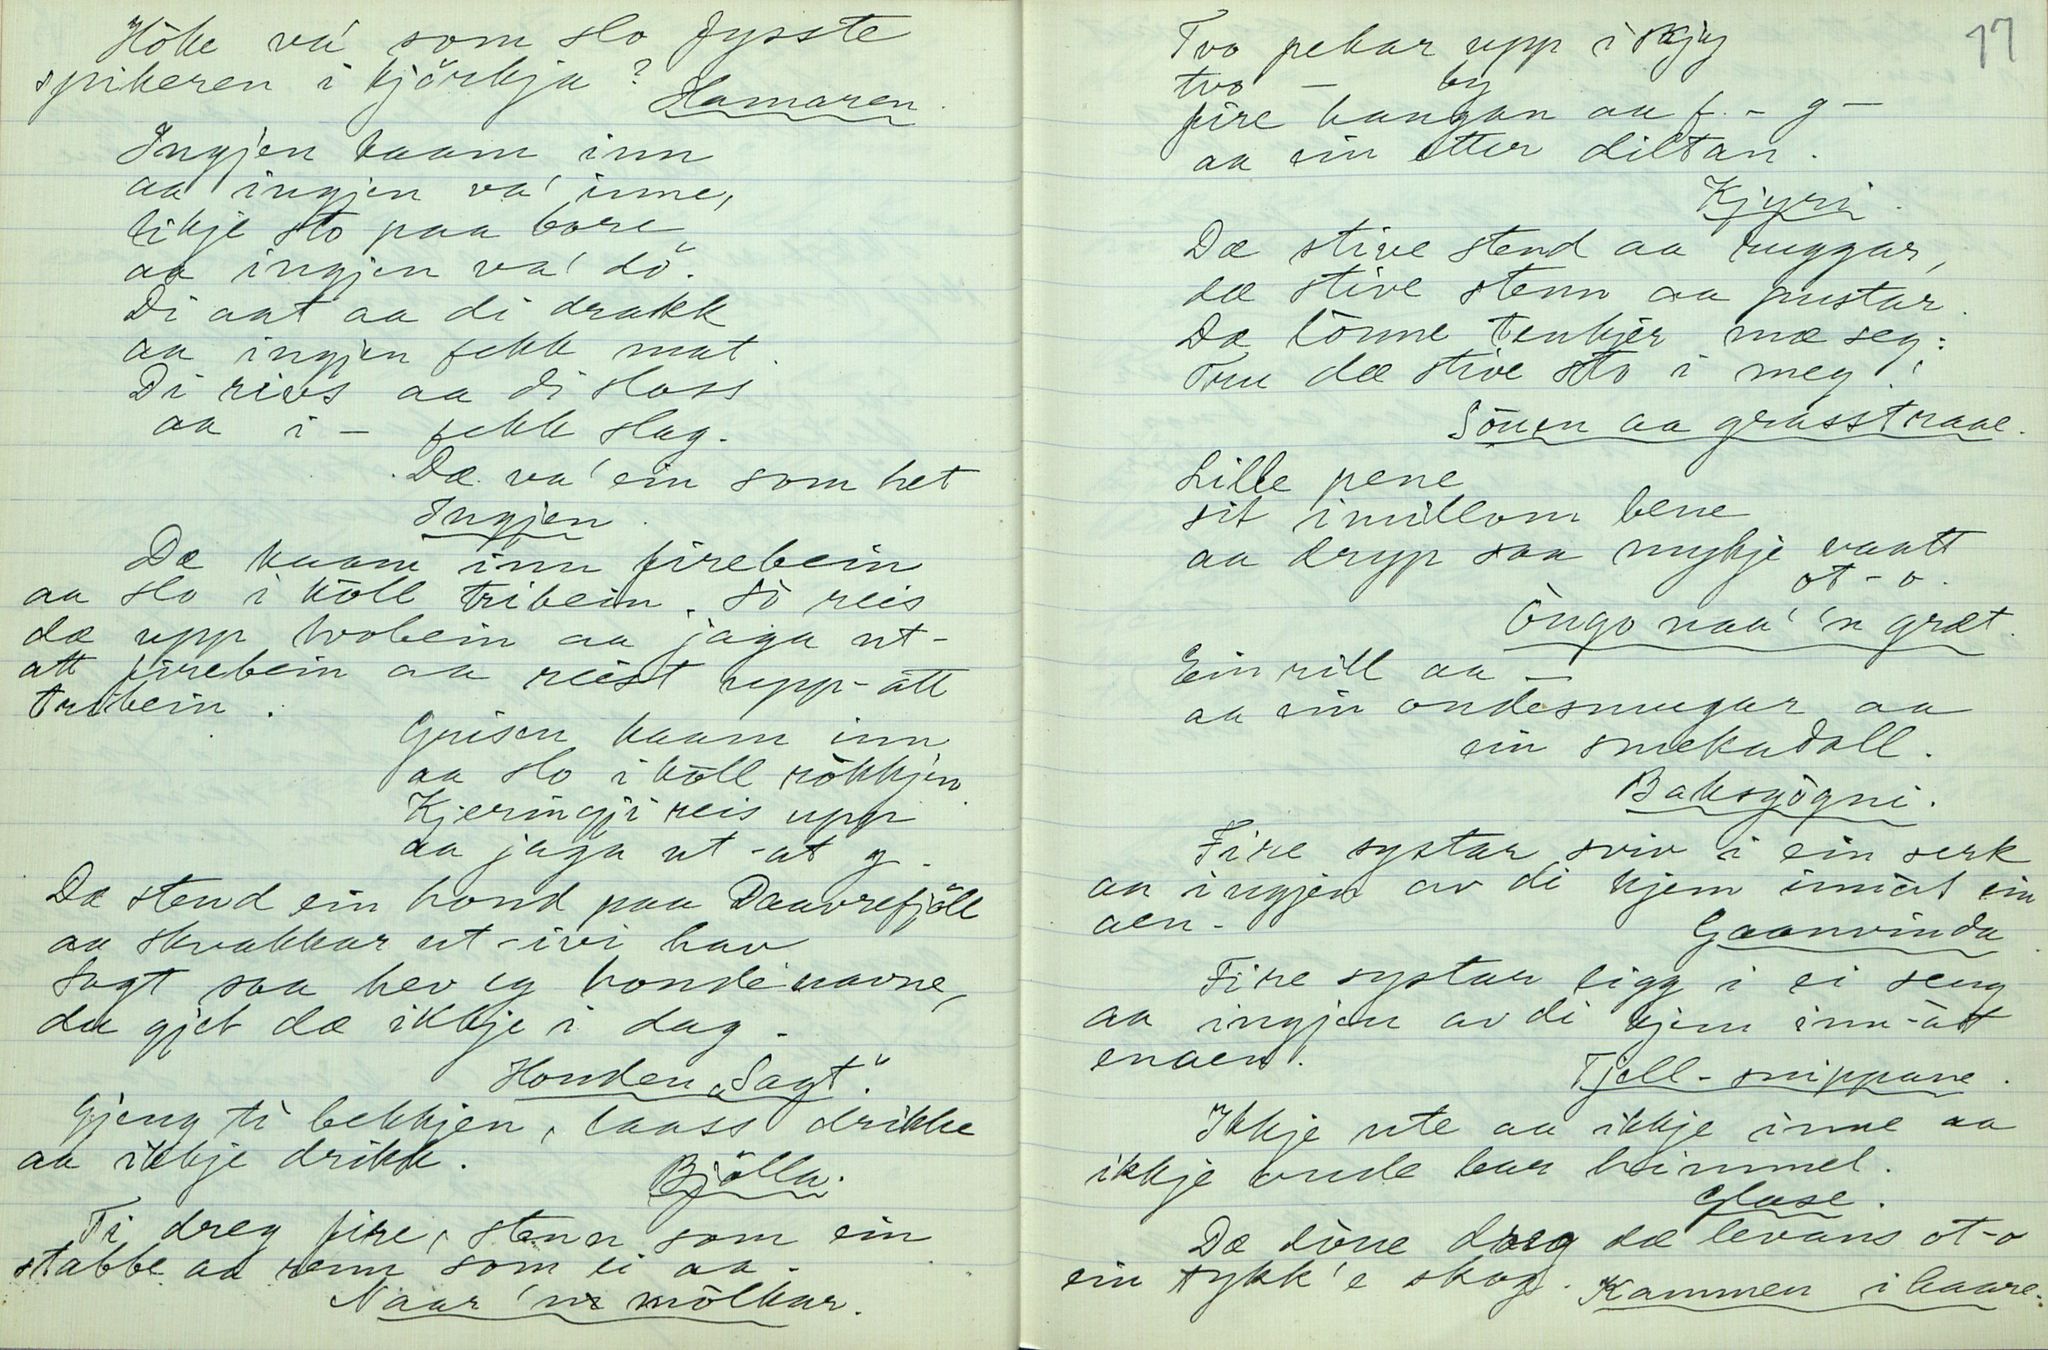 Höke va' som slo fysste
spikeren i kjörkja?
Hamaren.
Ingjen kaam inn
aa ingjen va' inne,
likje sto paa bore
aa ingjen va' dö.
Di aat aa di drakk
aa ingjen fekk mat.
Di reivs aa di sloss
aa i – fekk slag.
Dæ va' ein som het
Ingjen.
Dæ kaam inn firebein
aa slo i köll tribein. Sö reis
dæ upp tvobein aa jaga ut-
ått firebein aa reist upp-ått
tribein.
Grisen kaam inn
aa slo i köll rökkjen.
Kjeringji reis upp
aa jaga ut-at g.
Dæ stend ein hond paa Daavrefjöll
aa skvakkar ut-ivi hav
Sagt saa hev eg hondenavne,
du gjet dæ ikkje i dag.
Honden „Sagt".
Gjeng ti bekkjen, laass drikke
aa ikkje drikk.
Bjölla.
Ti dreg fire, stenn som ein
stabbe aa renn som ei aa.
Naar 'n mölkar.
17
Tvo pekar upp i skjy
tvo – by
fire hangan aa f. – g –
aa ein etter diltan.
Kjyri.
Dæ stive stend aa ruggar,
dæ stive stenn aa pustar.
Dæ lönne tenkjer mæ seg:
Tru dæ stive sto i meg!
Sönen aa grasstraae.
Lille pene
sit imillom bene
aa dryp saa mykje vaatt
ot-o.
Öugo naa' 'n græt.
Ein rill aa –
aa ein ondesmugar aa
ein smekadall.
Baksögni.
Fire systar sviv i ein serk
aa ingjen av di kjem innåt ein
aen.
Gaanvinda.
Fire systar ligg i ei seng
aa ingjen av di kjem inn-ått
enaen.
Tjell-snippane.
Ikkje ute aa ikkje inne aa
ikkje onde bar himmel.
Glase.
Dæ döue dreg dæ levans ot-o
ein tykk'e skog.
Kammen i haare.